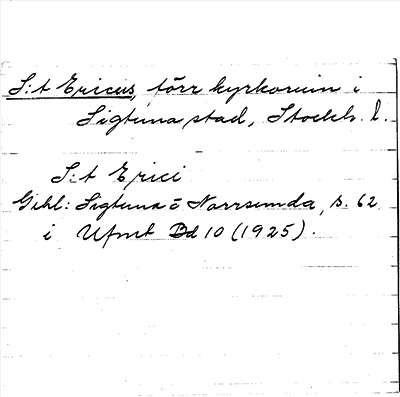 S:t Ericus, förr kyrkoruin i
Sigtuna stad, Stockh. l.
S:t Erici
Gihl: Sigtuna o Norrsunda, s. 62
i Ufmt Bd 10 (1925).